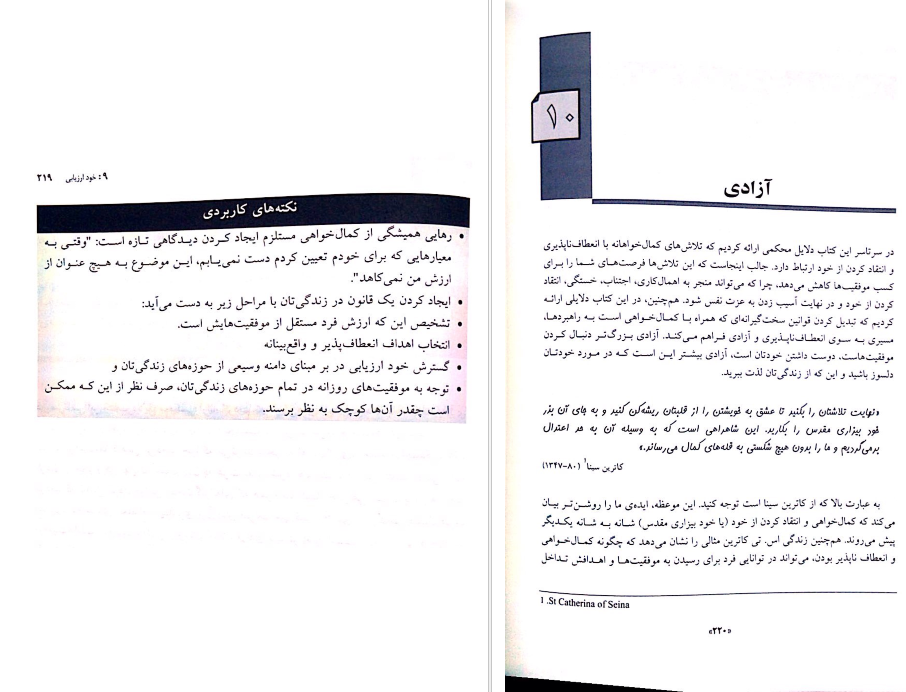 ۹ : خود ارزیابی ۲۱۹
نکته‌های کاربردی
• رهایی همیشگی از کمال‌خواهی مستلزم ایجاد کردن دیدگاهی تازه است: "وقتی به
معیارهایی که برای خودم تعیین کردم دست نمی‌یابم، این موضوع به هیچ عنوان از
ارزش من نمی‌کاهد".
• ایجاد کردن یک قانون در زندگی‌تان با مراحل زیر به دست می‌آید:
• تشخیص این که ارزش فرد مستقل از موفقیت‌هایش است.
• انتخاب اهداف انعطاف‌پذیر و واقع‌بینانه
• گسترش خود ارزیابی در بر مبنای دامنه وسیعی از حوزه‌های زندگی‌تان و
• توجه به موفقیت‌های روزانه در تمام حوزه‌های زندگی‌تان، صرف نظر از این که ممکن
است چقدر آن‌ها کوچک به نظر برسند.
۱۰
آزادی
در سرتاسر این کتاب دلایل محکمی ارائه کردیم که تلاش‌های کمال‌خواهانه با انعطاف‌ناپذیری
و انتقاد کردن از خود ارتباط دارد. جالب اینجاست که این تلاش‌ها فرصت‌های شما را برای
کسب موفقیت‌ها کاهش می‌دهد، چرا که می‌تواند منجر به اهمال‌کاری، اجتناب، خستگی، انتقاد
کردن از خود و در نهایت آسیب زدن به عزت نفس شود. هم‌چنین، در این کتاب دلایلی ارائه
کردیم که تبدیل کردن قوانین سخت‌گیرانه‌ای که همراه با کمال‌خواهی است به راهبردها،
مسیری به سوی انعطاف‌پذیری و آزادی فراهم می‌کند. آزادی بزرگ‌تر دنبال کردن
موفقیت‌هاست، دوست داشتن خودتان است، آزادی بیشتر این است که در مورد خودتان
دلسوز باشید و این که از زندگی‌تان لذت ببرید.
«نهایت تلاشتان را بکنید تا عشق به خویشتن را از قلبتان ریشه‌کن کنید و به جای آن بذر
خود بیزاری مقدس را بکارید. این شاهراهی است که به وسیله آن به حد اعتدال
برمی‌گردیم و ما را بدون هیچ شکستی به قله‌های کمال می‌رساند.»
کاترین سینا¹ (۸۰-۱۳۴۷)
به عبارت بالا که از کاترین سینا است توجه کنید. این موعظه، ایده‌ی ما را روشن‌تر بیان
می‌کند که کمال‌خواهی و انتقاد کردن از خود (یا خود بیزاری مقدس) شانه به شانه یکدیگر
پیش می‌روند. هم‌چنین زندگی اس. تی کاترین مثالی را نشان می‌دهد که چگونه کمال‌خواهی
و انعطاف ناپذیر بودن، می‌تواند در توانایی فرد برای رسیدن به موفقیت‌ها و اهدافش تداخل
1 .St Catherina of Seina
«۲۲۰»